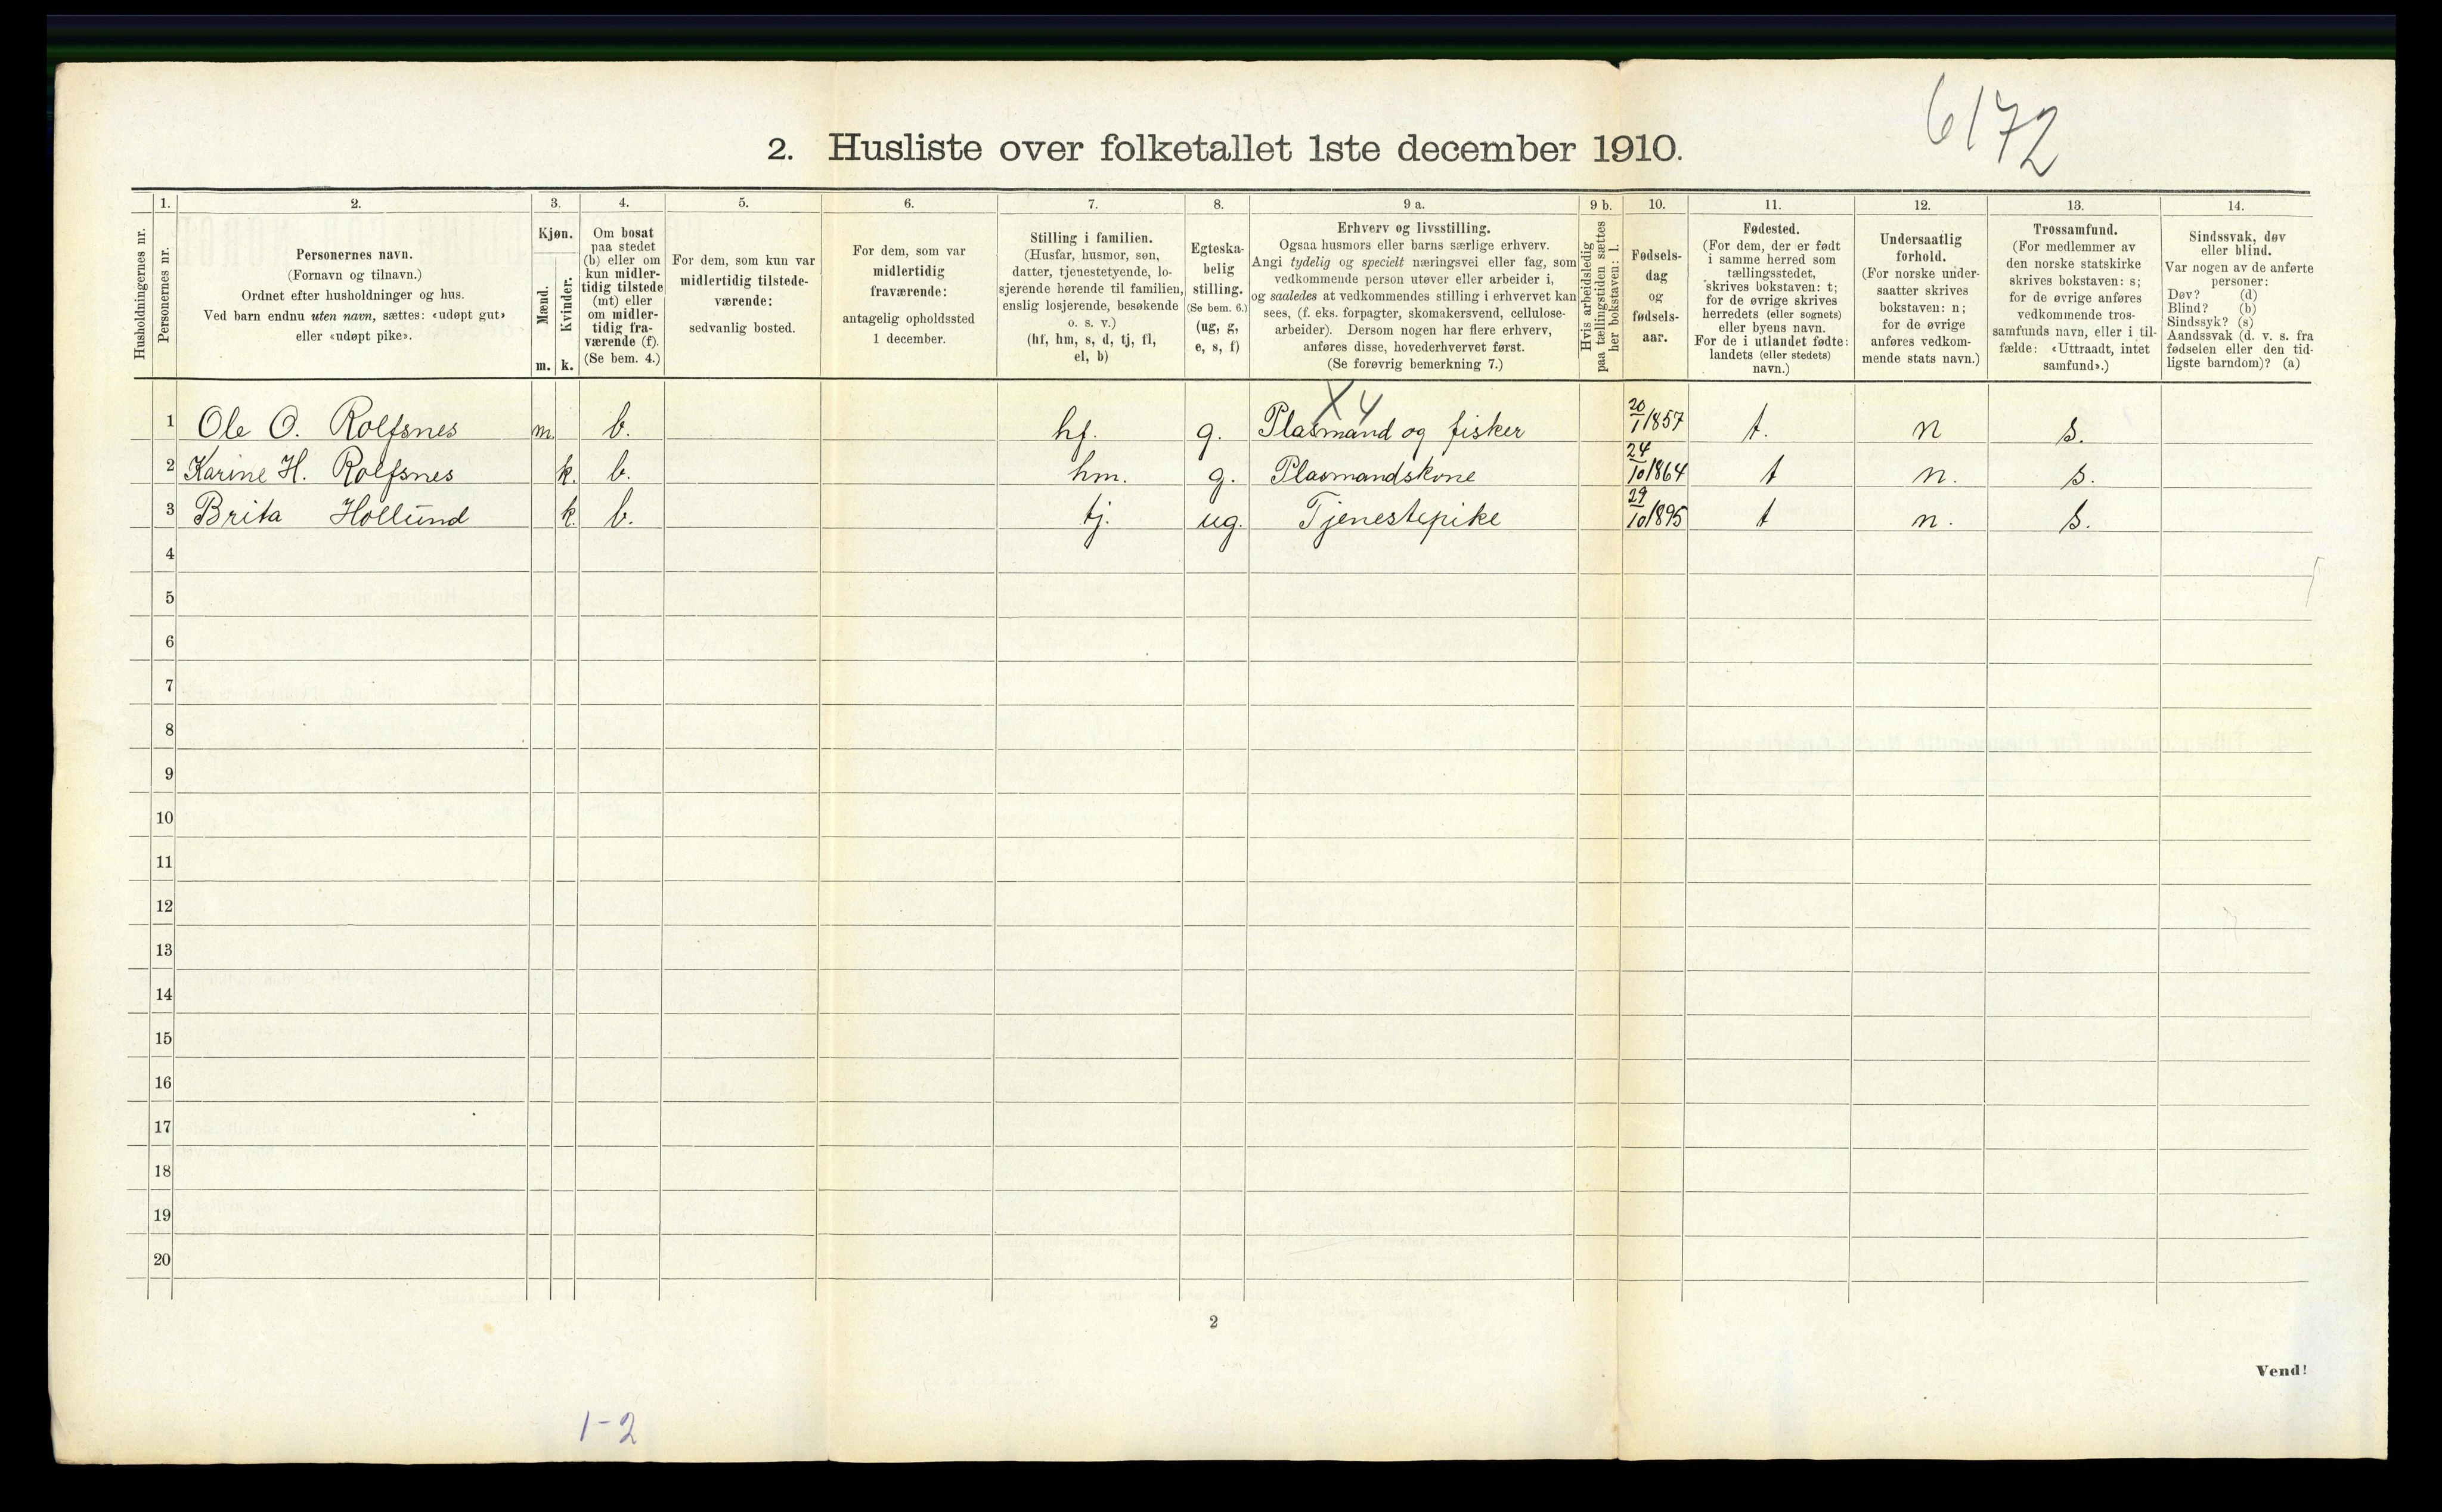 6172
2. Husliste over folketallet 1ste december 1910.
Husholdningernes nr.
1.
Personernes nr.
2.
Personernes navn.
(Fornavn og tilnavn.)
Ordnet efter husholdninger og hus.
Ved barn endnu uten navn, sættes: «udøpt gut»
eller «udøpt pike».
3.
Kjøn.
Mænd.
Kvinder.
m. k.
4.
Om bosat
paa stedet
(b) eller om
kun midler-
tidig tilstede
(mt) eller
om midler-
tidig fra-
værende (f).
(Se bem. 4.)
5.
For dem, som kun var
midlertidig tilstede-
værende:
sedvanlig bosted.
6.
For dem, som var
midlertidig
fraværende:
antagelig opholdssted
1 december.
7.
Stilling i familien.
(Husfar, husmor, søn,
datter, tjenestetyende, lo-
sjerende hørende til familien,
enslig losjerende, besøkende
o. s. v.)
(hf, hm, s, d, tj, fl,
el, b)
8.
Egteska-
belig
stilling.
(Se bem. 6.)
(ug, g,
e, s, f)
9 a.
Erhverv og livsstilling.
Ogsaa husmors eller barns særlige erhverv.
Angi tydelig og specielt næringsvei eller fag, som
vedkommende person utøver eller arbeider i,
og saaledes at vedkommendes stilling i erhvervet kan
sees, (f. eks. forpagter, skomakersvend, cellulose-
arbeider). Dersom nogen har flere erhverv,
anføres disse, hovederhvervet først.
(Se forøvrig bemerkning 7.)
9 b.
Hvis arbeidsledig
paa tællingstiden sættes
her bokstaven: l.
10.
Fødsels-
dag
og
fødsels-
aar.
11.
Fødested.
(For dem, der er født
i samme herred som
tællingsstedet,
skrives bokstaven: t;
for de øvrige skrives
herredets (eller sognets)
eller byens navn.
For de i utlandet fødte:
landets (eller stedets)
navn.)
12.
Undersaatlig
forhold.
(For norske under-
saatter skrives
bokstaven: n;
for de øvrige
anføres vedkom-
mende stats navn.)
13.
Trossamfund.
(For medlemmer av
den norske statskirke
skrives bokstaven: s;
for de øvrige anføres
vedkommende tros-
samfunds navn, eller i til-
fælde: «Uttraadt, intet
samfund».)
14.
Sindssvak, døv
eller blind.
Var nogen av de anførte
personer:
Døv? (d)
Blind? (b)
Sindssyk? (s)
Aandssvak (d. v. s. fra
fødselen eller den tid-
ligste barndom)? (a)
X 4
1 Ole O. Rolfsnes m. b. hf. g. Plasmand og fisker 20/1 1857 t. n s.
2 Karine H. Rolfsnes k. b. hm. g. Plasmandskone 24/10 1864 t n. s.
3 Brita Hollund k. b. tj. ug. Tjenestepike 29/10 1895 t n. s.
4
5
6
7
8
9
10
11
12
13
14
15
16
17
18
19
20
2
Vend!
1-2